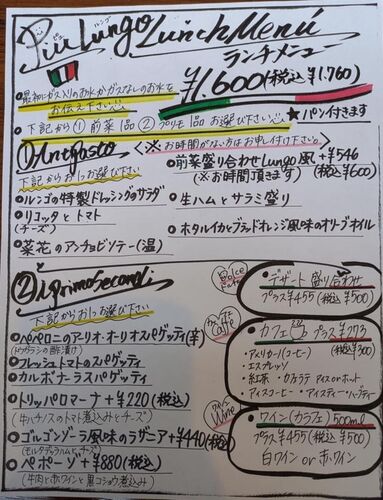 ピュ ルンゴ
Più Lungo Lunch Menú
ランチメニュー
¥1.600(税込¥1.760)
最初にガス入りのお水かガスなしのお水を
お伝え下さい
★パン付きます
下記から①前菜1品②プリモ1品お選び下さい
①Antipasto
<※お時間がない方はお申し付け下さい。>
下記からお1つお選び下さい
・前菜盛り合わせLungo風+¥546
(※お時間頂きます)(税込¥600)
・ルンゴの特製ドレッシングのサラダ
・生ハムとサラミ盛り
・リコッタとトマト
(チーズ)
・ホタルイカとブラッドオレンジ風味のオリーブオイル
・菜花のアンチョビソテー(温)
②i primo secondi
下記からお1つお選び下さい
・ペペロニのアーリオ・オーリオスパゲッティ(辛)
(トウガラシの酢漬け)
・フレッシュトマトのスパゲッティ
・カルボナーラスパゲッティ
・トリッパロマーナ+¥220(税込)
(牛ハチノスのトマト煮込みとチーズ)
・ゴルゴンゾーラ風味のラザーニア+¥440(税込)
(モルタデッラハムとチーズ)
・ペポーゾ+¥880(税込)
(牛肉と赤ワインと黒コショウ煮込み)
Dolce
・デザート盛り合わせ
プラス¥455(税込¥500)
Caffè
・カフェ プラス¥273
(税込¥300)
・アメリカーノ(コーヒー)
・エスプレッソ
・紅茶 ・カフェラテ アイスorホット
・アイスコーヒー ・アイスティー
Vino
・ワイン(カラフェ)500ml
プラス¥455(税込¥500)
白ワインor赤ワイン